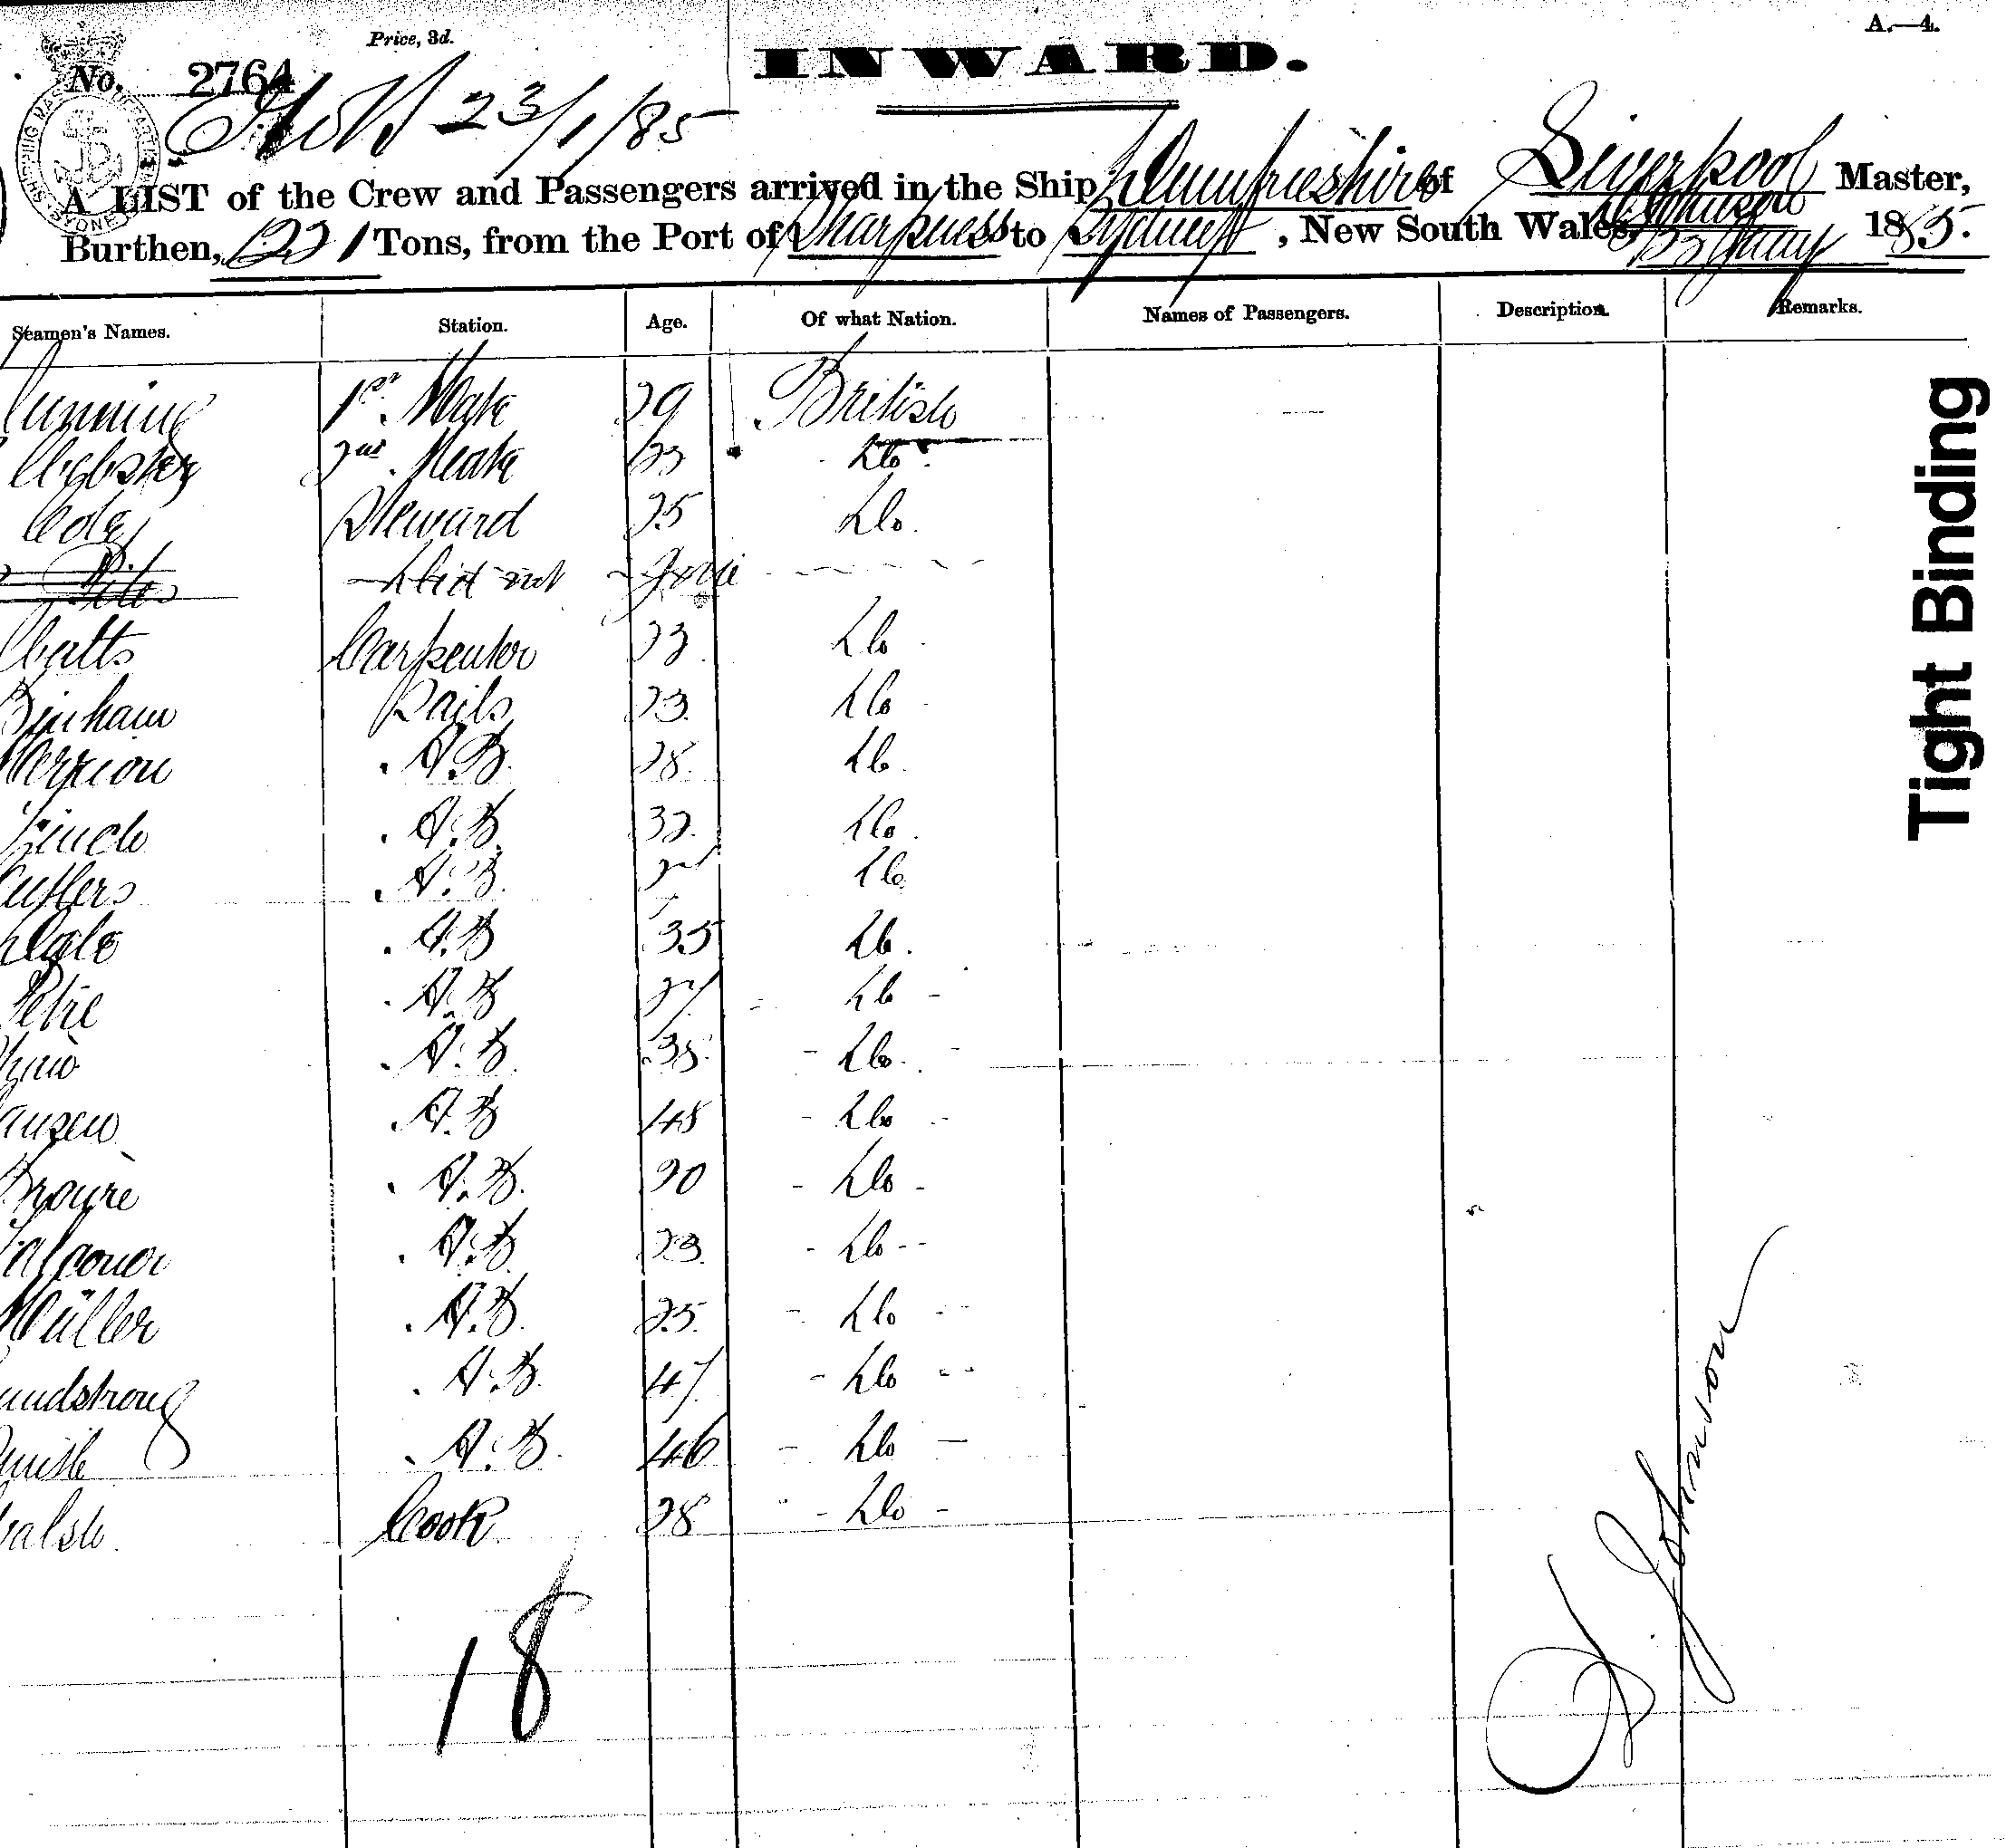 A.—4.
Price, 3d.
No. 2764
INWARD.
23/1/85
A LIST of the Crew and Passengers arrived in the Ship Dumfrieshire of Liverpool Master,
Burthen, 1221 Tons, from the Port of Sharpness to Sydney, New South Wales, Johnson 23 Jany 1885.
Seamen's Names. Station. Age. Of what Nation. Names of Passengers. Description. Remarks.
1st Mate 29 British
Webster 2nd Mate 23 Do
Steward 25 Do.
Did not Join
Watts Carpenter 23 Do
Binham Sails 23 Do
Merrion A.B. 28 Do
Finch A.B. 32 Do
A.B. Do
Dale A.B 35 Do
Petrie A.B 27 Do
A.B. 38 Do
A.B 48 Do
A.B. 30 Do
Falconer A.B 23 Do
Müller A.B. 25 Do
undstrong A.B. 47 Do
A.B. 46 Do
Walsh Cook 28 Do
18
Johnson
Tight Binding